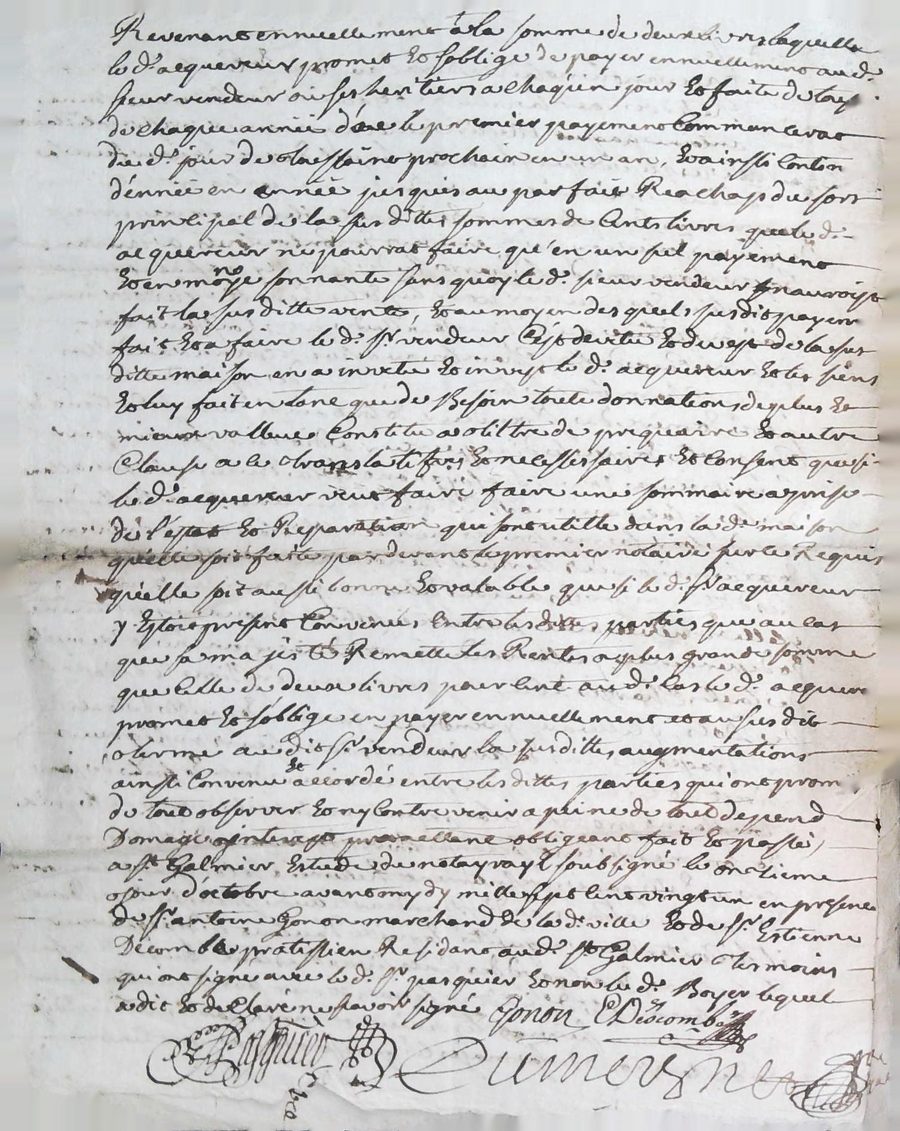 Revenant ennuellement a la somme de deux livres laquelle
le d. acquereur promet et soblige de payer ennuellement aud.
sieur vendeur ou ses heritiers a chaquun jour et faite de tous
de chaque année dont le premier payement commancerat
du d. jour de toussaint prochain en un an, et ainsi conton
d'énnée en année jusques au parfait Reachapt du sort
principal de la susditte somme de Cents livres que le d.
acquereur ne pourrat faire qu'en un sul payement
et en monoye sonnante sans quoy le d. sieur vendeur n'auroist
fait la susditte vente, et au moyen desquels susdit payem
fait et a faire le d. sr. vendeur C'est devetu et devest de la sus
ditte maison en a invetu et invest le d. acquereur et les siens
et luy fait en tant que de Besoin toute donnations de plus et
mieux vallue Constitu a tiltre de precaire et autre
Clause a ce translatifves et necessesaires et consent que si
le d. acquereur veut faire faire une sommaire aprise
de l'estat et Reparation qui sont utille dans lad. maison
quelle soit faite pardevant le premier notaire sur ce Requis
quelle soit aussi bonne et valable que si le d. sr. acquereur
y Estoit present Convenus entre lesdittes parties que au cas
que sa majesté Remette les Rentes a plus grande somme
que celle de deux livres pour cent aud. cas le d. acquere
promet et soblige en payer ennuellement et au susdit
terme au dit sr. vendeur la susdittes augmentations
ainssi Convenu et accordé entre lesdittes parties qui ont prom
de tout observer et ny Contrevenir a peine de tout depend
Domage interest obligeant fait et passé
a st. Galmier Estude du notayre royl soubsigné le onzieme
jour d'octobre avant mydy mille sept cent vingt un en presence
de sr. antoine Gonon marchand de lad. ville et de sr. Estienne
Décombe pratissien Residant aud. st. Galmier tesmoins
qui ont signe avec le d. sr. pasquier et non le d. Boyer lequel
a dit et declaré ne savoir signé Gonon E Descombes
Pasquier
Dumergne